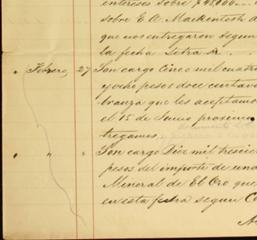 intereses sobre $48,000. ...
sobre E. A. Mackintosh
que nos entregaron segun
la fecha Letra A. ...
" Febrero, 27 Son cargo Cinco mil cuatro
y ocho pesos doce centavos
branza que les aceptamos
el 15 de Junio proximo
tregamos
" " Son cargo Diez mil trescien
pesos del importe de una
Mineral de El Oro que
en esta fecha segun C